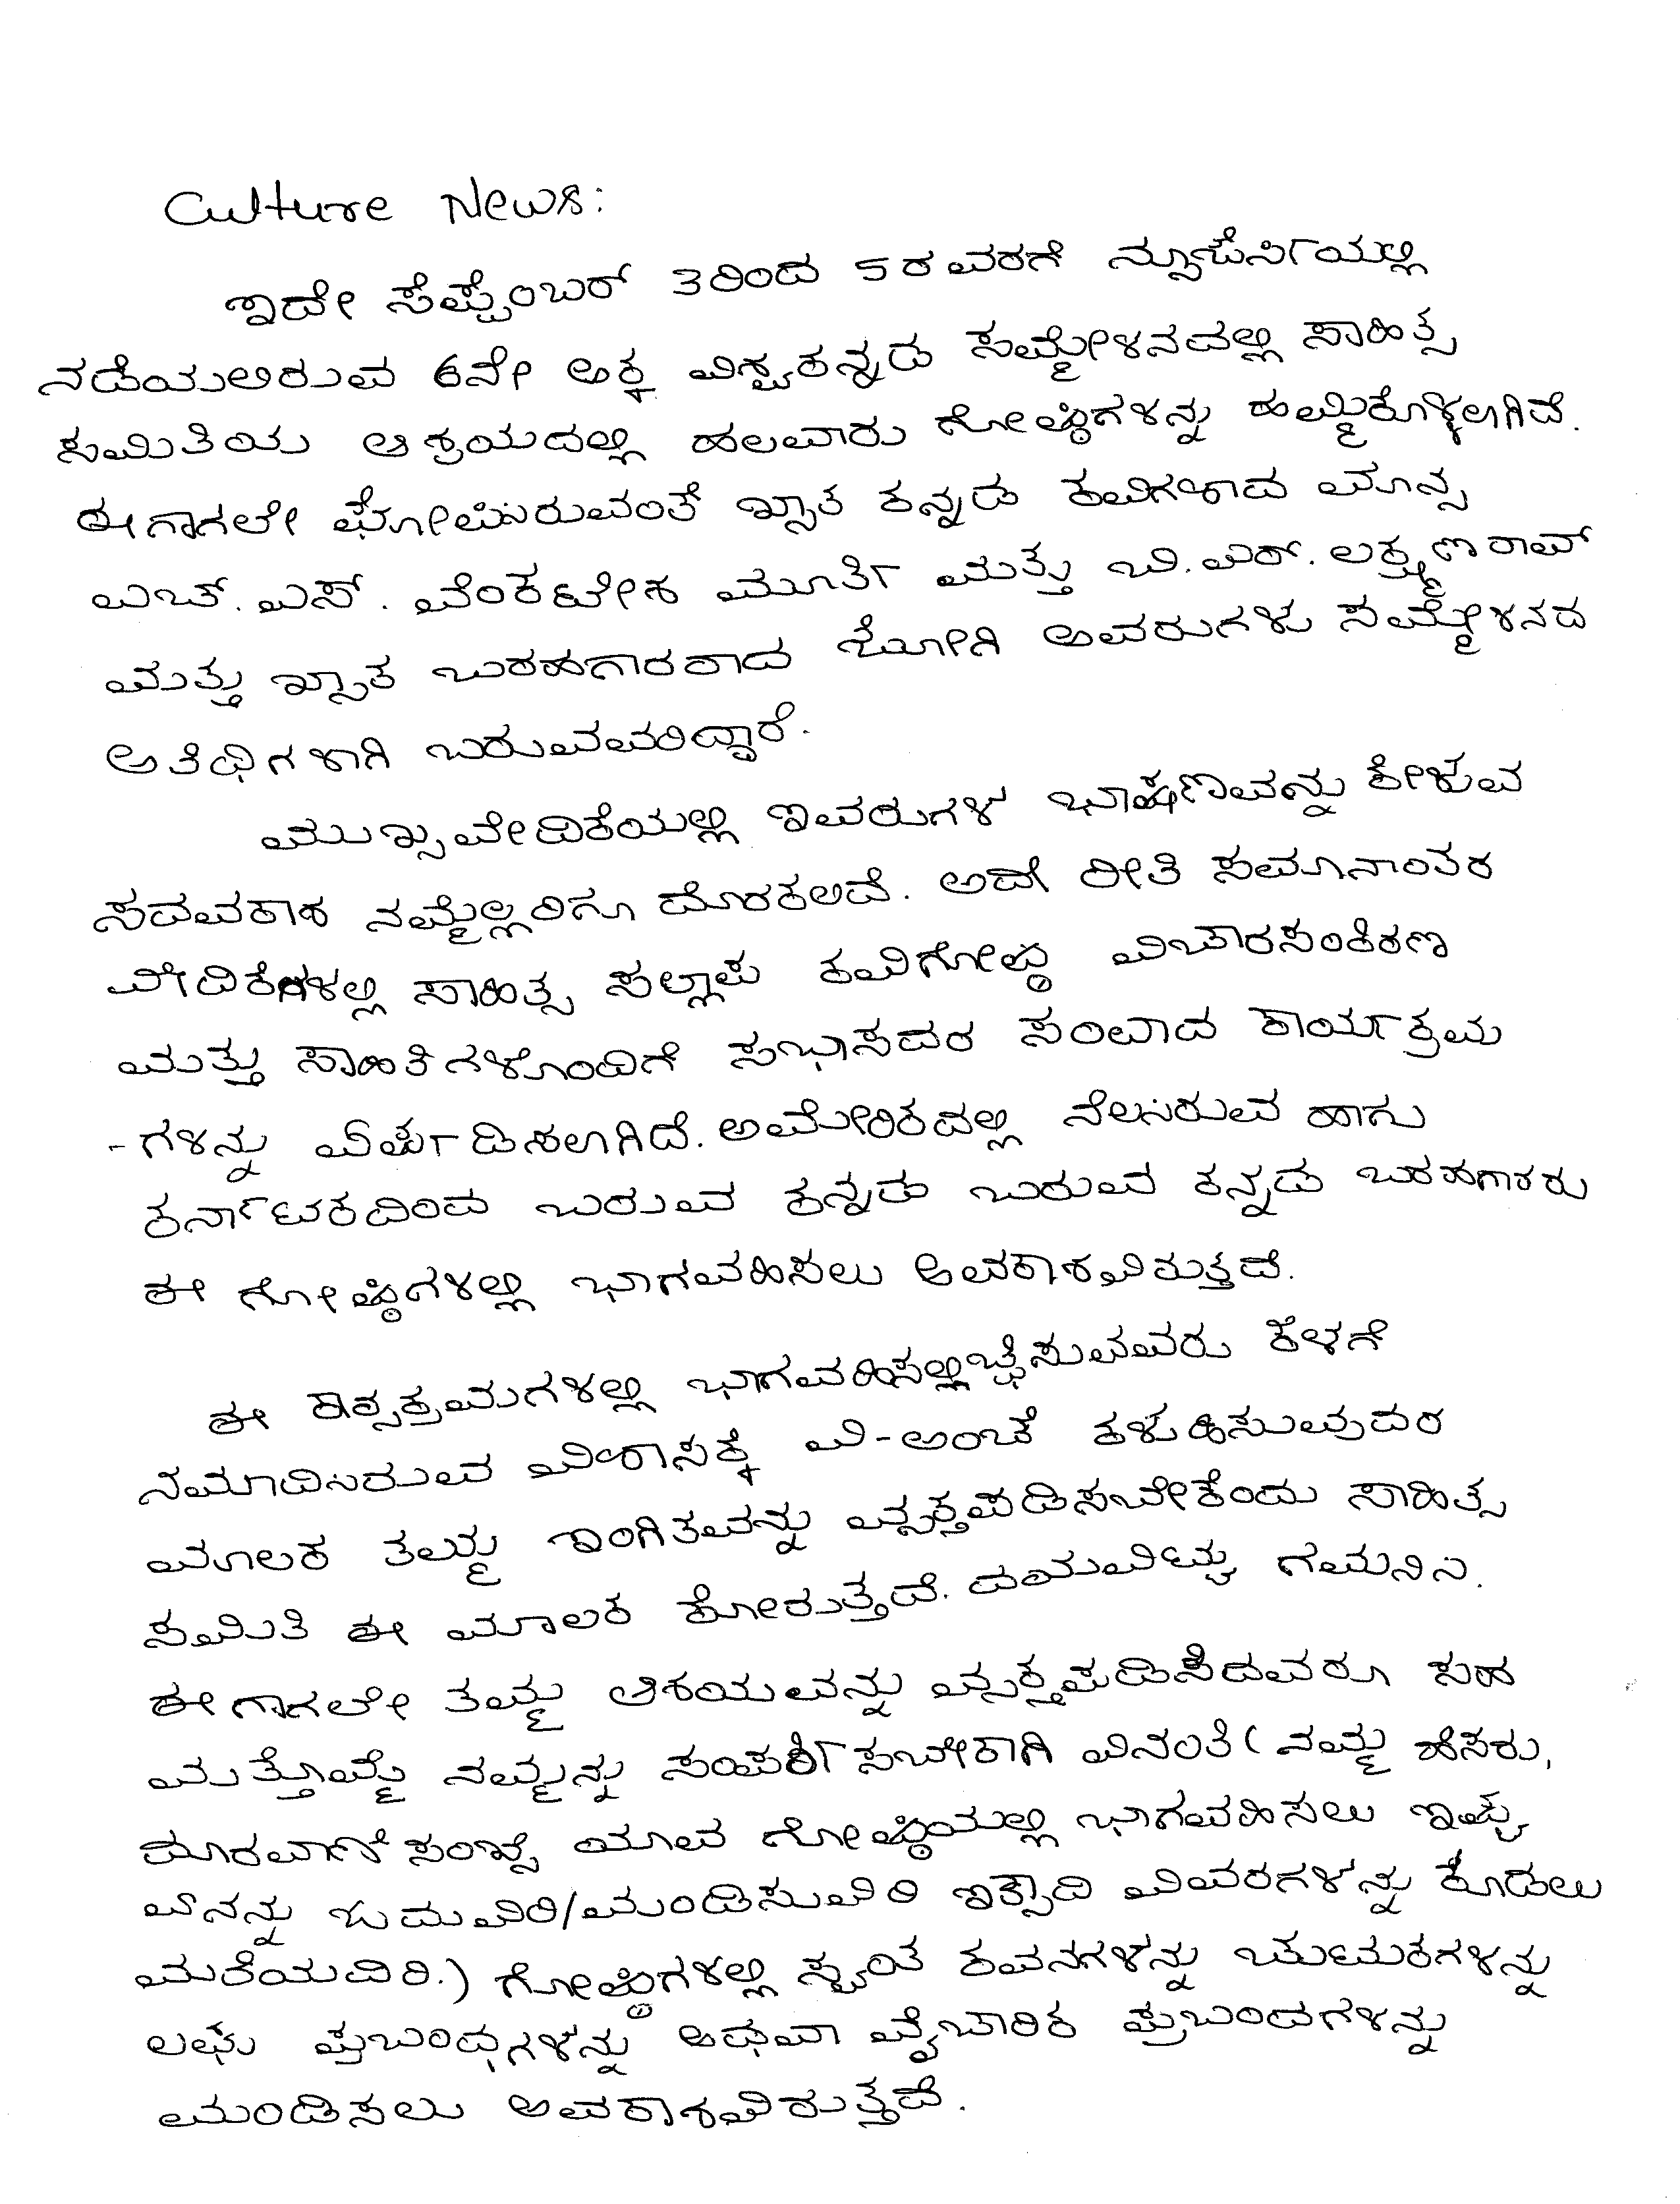 Culture News:
ಇದೇ ಸೆಪ್ಟೆಂಬರ್ 3ರಿಂದ 5ರವರಗೆ ನ್ಯೂಜೆರ್ಸಿಯಲ್ಲಿ
ನಡೆಯಲಿರುವ 6ನೇ ಅಕ್ಕ ವಿಶ್ವಕನ್ನಡ ಸಮ್ಮೇಳನದಲ್ಲಿ ಸಾಹಿತ್ಯ
ಸಮಿತಿಯ ಆಶ್ರಯದಲ್ಲಿ ಹಲವಾರು ಗೋಷ್ಠಿಗಳನ್ನು ಹಮ್ಮಿಕೊಳ್ಳಲಾಗಿದೆ.
ಈಗಾಗಲೇ ಘೋಷಿಸಿರುವಂತೆ ಖ್ಯಾತ ಕನ್ನಡ ಕವಿಗಳಾದ ಮಾನ್ಯ
ಎಚ್. ಎಸ್. ವೆಂಕಟೇಶ ಮೂರ್ತಿ ಮತ್ತು ಬಿ. ಎರ್. ಲಕ್ಷ್ಮಣರಾವ್
ಮತ್ತು ಖ್ಯಾತ ಬರಹಗಾರರಾದ ಜೋಗಿ ಅವರುಗಳು ಸಮ್ಮೇಳನದ
ಅತಿಥಿಗಳಾಗಿ ಬರುವವರಿದ್ದಾರೆ.
ಮುಖ್ಯವೇದಿಕೆಯಲ್ಲಿ ಇವರುಗಳ ಭಾಷಣವನ್ನು ಕೇಳುವ
ಸದವಕಾಶ ನಮ್ಮೆಲ್ಲರಿಗೂ ದೊರಕಲಿದೆ. ಅದೇ ರೀತಿ ಸಮಾನಾಂತರ
ವೇದಿಕೆಗಳಲ್ಲಿ ಸಾಹಿತ್ಯ ಸಲ್ಲಾಪ ಕವಿಗೋಷ್ಠಿ ವಿಚಾರಸಂಕಿರಣ
ಮತ್ತು ಸಾಹಿತಿಗಳೊಂದಿಗೆ ಸಭಾಸದರ ಸಂವಾದ ಕಾರ್ಯಕ್ರಮ
-ಗಳನ್ನು ಏರ್ಪಡಿಸಲಾಗಿದೆ. ಅಮೇರಿಕದಲ್ಲಿ ನೆಲಸಿರುವ ಹಾಗು
ಕರ್ನಾಟಕದಿಂದ ಬರುವ ಕನ್ನಡ ಬರುವ ಕನ್ನಡ ಬರಹಗಾರರು
ಈ ಗೋಷ್ಠಿಗಳಲ್ಲಿ ಭಾಗವಹಿಸಲು ಅವಕಾಶವಿರುತ್ತದೆ.
ಈ ಕಾರ್ಯಕ್ರಮಗಳಲ್ಲಿ ಭಾಗವಹಿಸಲ್ಲಿಚ್ಛಿಸುವವರು ಕೆಳಗೆ
ನಮೂದಿಸಿರುವ ವಿಳಾಸಕ್ಕೆ ವಿ-ಅಂಚೆ ಕಳುಹಿಸುವುದರ
ಮೂಲಕ ತಮ್ಮ ಇಂಗಿತವನ್ನು ವ್ಯಕ್ತಪಡಿಸಬೇಕೆಂದು ಸಾಹಿತ್ಯ
ಸಮಿತಿ ಈ ಮೂಲಕ ಕೋರುತ್ತದೆ. ದಯವಿಟ್ಟು ಗಮನಿಸಿ.
ಈಗಾಗಲೇ ತಮ್ಮ ಆಶಯವನ್ನು ವ್ಯಕ್ತಪಡಿಸಿದವರೂ ಸಹ
ಮತ್ತೊಮ್ಮೆ ನಮ್ಮನ್ನು ಸಂಪರ್ಕಿಸಬೇಕಾಗಿ ವಿನಂತಿ (ನಮ್ಮ ಹೆಸರು,
ದೂರವಾಣಿ ಸಂಖ್ಯೆ ಯಾವ ಗೋಷ್ಠಿಯಲ್ಲಿ ಭಾಗವಹಿಸಲು ಇಷ್ಟ
ಏನನ್ನು ಓದುವಿರಿ/ಮಂಡಿಸುವಿರಿ ಇತ್ಯಾದಿ ವಿವರಗಳನ್ನು ಕೊಡಲು
ಮರೆಯದಿರಿ.) ಗೋಷ್ಠಿಗಳಲ್ಲಿ ಸ್ವರಚಿತ ಕವನಗಳನ್ನು ಚುಟುಕಗಳನ್ನು
ಲಘು ಪ್ರಬಂಧಗಳನ್ನು ಅಥವಾ ವೈಚಾರಿಕ ಪ್ರಬಂಧಗಳನ್ನು
ಮಂಡಿಸಲು ಅವಕಾಶವಿರುತ್ತದೆ.